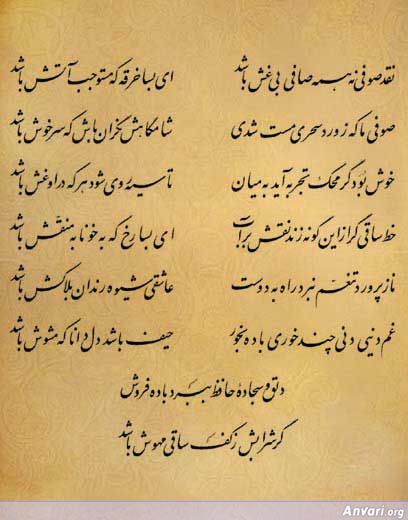 نقد صوفی نه همه صافی بی غش باشد ای بسا خرقه که مستوجب آتش باشد
صوفی ما که ز ورد سحری مست شدی شامگاهش نگران باش که سرخوش باشد
خوش بود گر محک تجربه آید به میان تا سیه روی شود هر که در او غش باشد
خط ساقی گر از این گونه زند نقش بر آب ای بسا رخ که به خونابه منقش باشد
ناز پرورد تنعم نبرد راه به دوست عاشقی شیوه رندان بلاکش باشد
غم دنیی دنی چند خوری باده بخور حیف باشد دل دانا که مشوش باشد
دلق و سجادهٔ حافظ ببرد باده فروش
گر شرابش ز کف ساقی مهوش باشد
Anvari.org